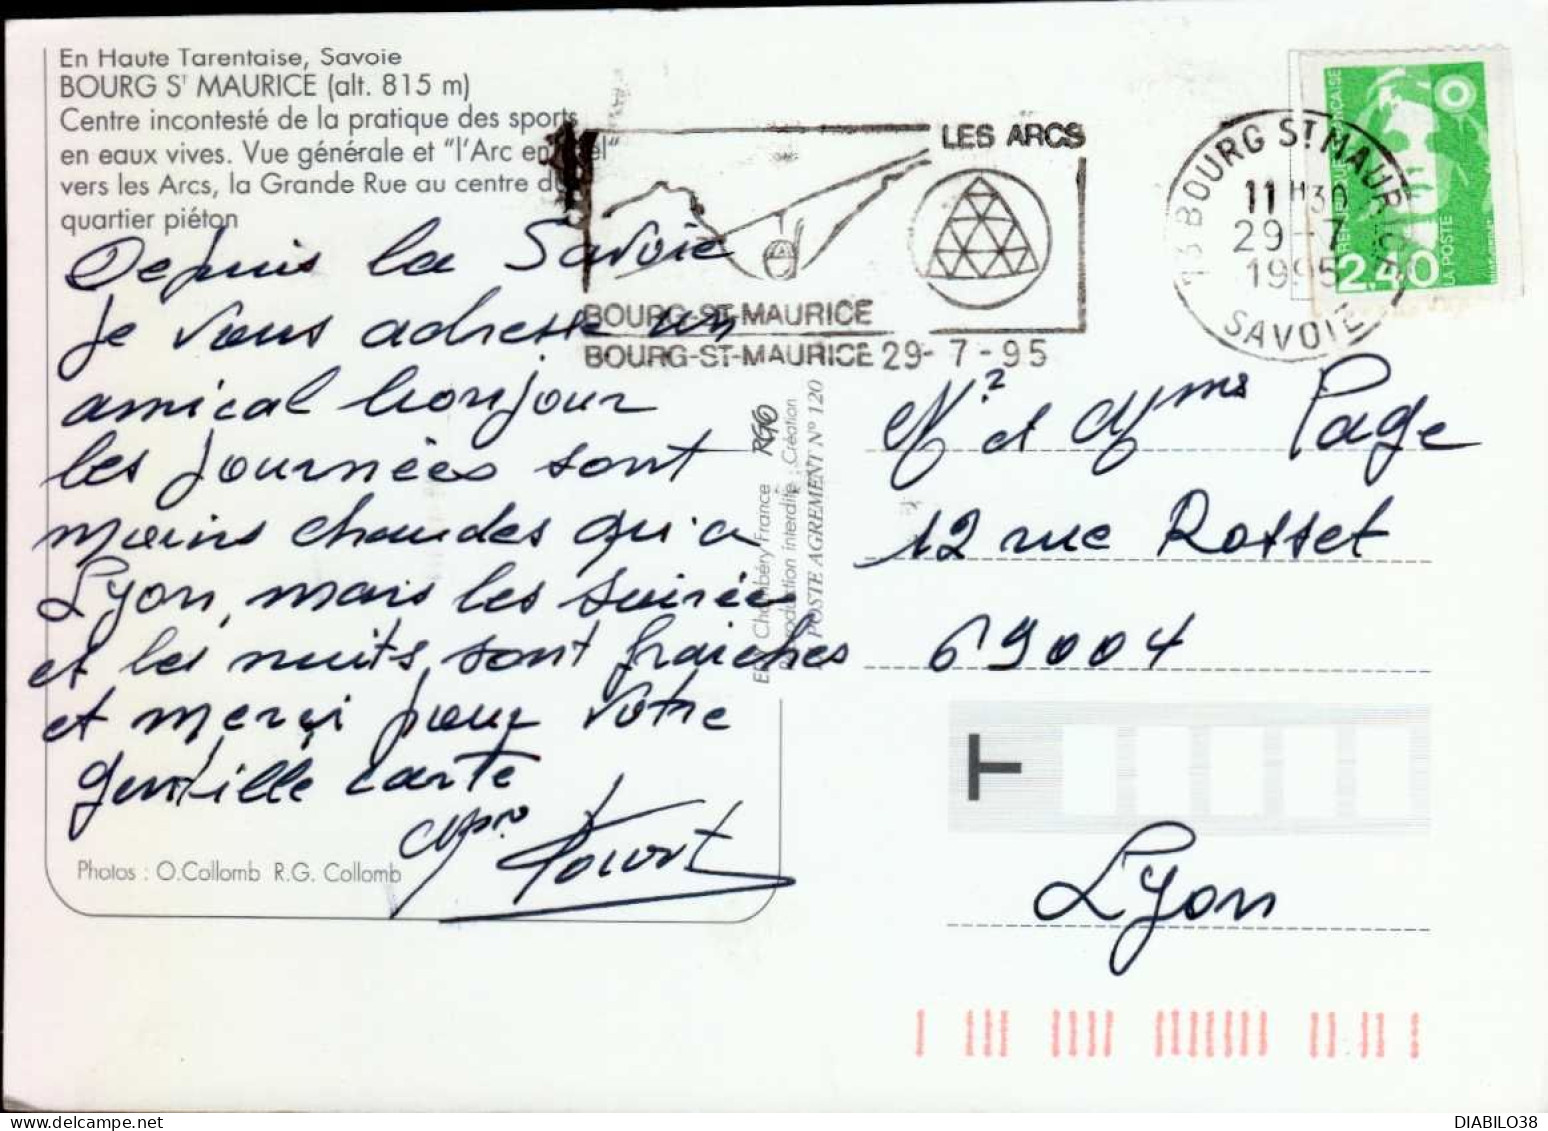 En Haute Tarentaise, Savoie
BOURG ST MAURICE (alt. 815 m)
Centre incontesté de la pratique des sports
en eaux vives. Vue générale et "l'Arc en
vers les Arcs, la Grande Rue au centre du
quartier piéton
Depuis la Savoie
je vous adresse un
amical bonjour
les journées sont
moins chaudes qu'a
Lyon, mais les soirées
et les nuits sont fraiches
et merçi pour votre
gentille carte
Photos : O.Collomb R.G. Collomb
LES ARCS
BOURG-ST-MAURICE
BOURG-ST-MAURICE 29-7-95
73 BOURG ST MAURICE
11 H30
29-7
1995
SAVOIE
2,40
LA POSTE
Chambéry France
production interdite . Création
POSTE AGREMENT N° 120
Mr et Mme Page
12 rue Rosset
69004
T
Lyon
DIABILO38